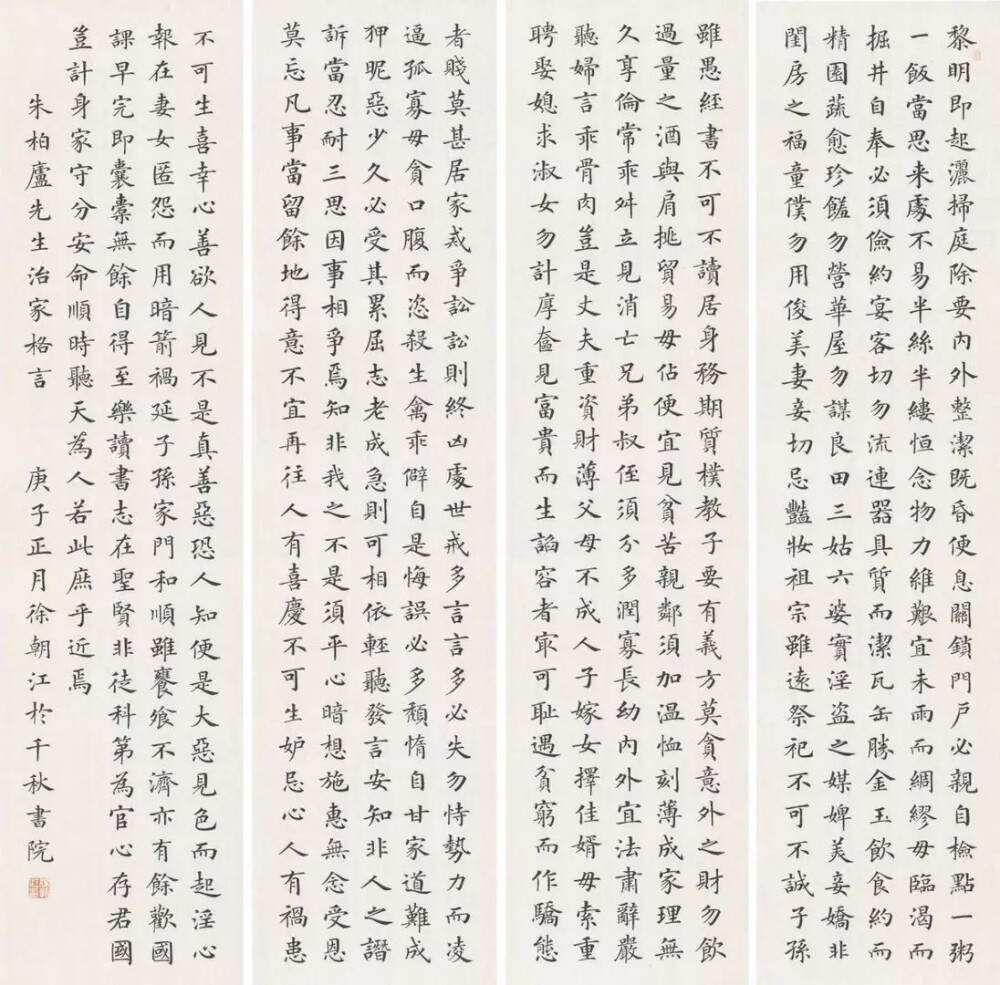 黎明即起灑掃庭除要内外整潔既昏便息關鎖門户必親自檢點一粥
一飯當思来處不易半絲半縷恒念物力維艱宜未雨而綢繆毋臨渴而
掘井自奉必須儉約宴客切勿流連器具質而潔瓦缶勝金玉飲食約而
精園蔬愈珍饈勿營華屋勿謀良田三姑六婆實淫盗之媒婢美妾嬌非
閨房之福童僕勿用俊美妻妾切忌豔妝祖宗雖遠祭祀不可不誠子孫
雖愚經書不可不讀居身務期質樸教子要有義方莫貪意外之財勿飲
過量之酒與肩挑貿易毋佔便宜見貧苦親鄰須加温恤刻薄成家理無
久享倫常乖舛立見消亡兄弟叔侄須分多潤寡長幼内外宜法肅辭嚴
聽婦言乖骨肉豈是丈夫重資財薄父母不成人子嫁女擇佳婿毋索重
聘娶媳求淑女勿計厚奩見富貴而生諂容者最可耻遇貧窮而作驕態
者賤莫甚居家戒爭訟訟則終凶處世戒多言言多必失勿恃勢力而凌
逼孤寡毋貪口腹而恣殺生禽乖僻自是悔誤必多頹惰自甘家道難成
狎昵惡少久必受其累屈志老成急則可相依輕聽發言安知非人之譖
訴當忍耐三思因事相爭焉知非我之不是須平心暗想施惠無念受恩
莫忘凡事當留餘地得意不宜再往人有喜慶不可生妒忌心人有禍患
不可生喜幸心善欲人見不是真善惡恐人知便是大惡見色而起淫心
報在妻女匿怨而用暗箭禍延子孫家門和順雖饔飧不濟亦有餘歡國
課早完即囊橐無餘自得至樂讀書志在聖賢非徒科第為官心存君國
豈計身家守分安命順時聽天為人若此庶乎近焉
朱柏廬先生治家格言 庚子正月徐朝江於千秋書院